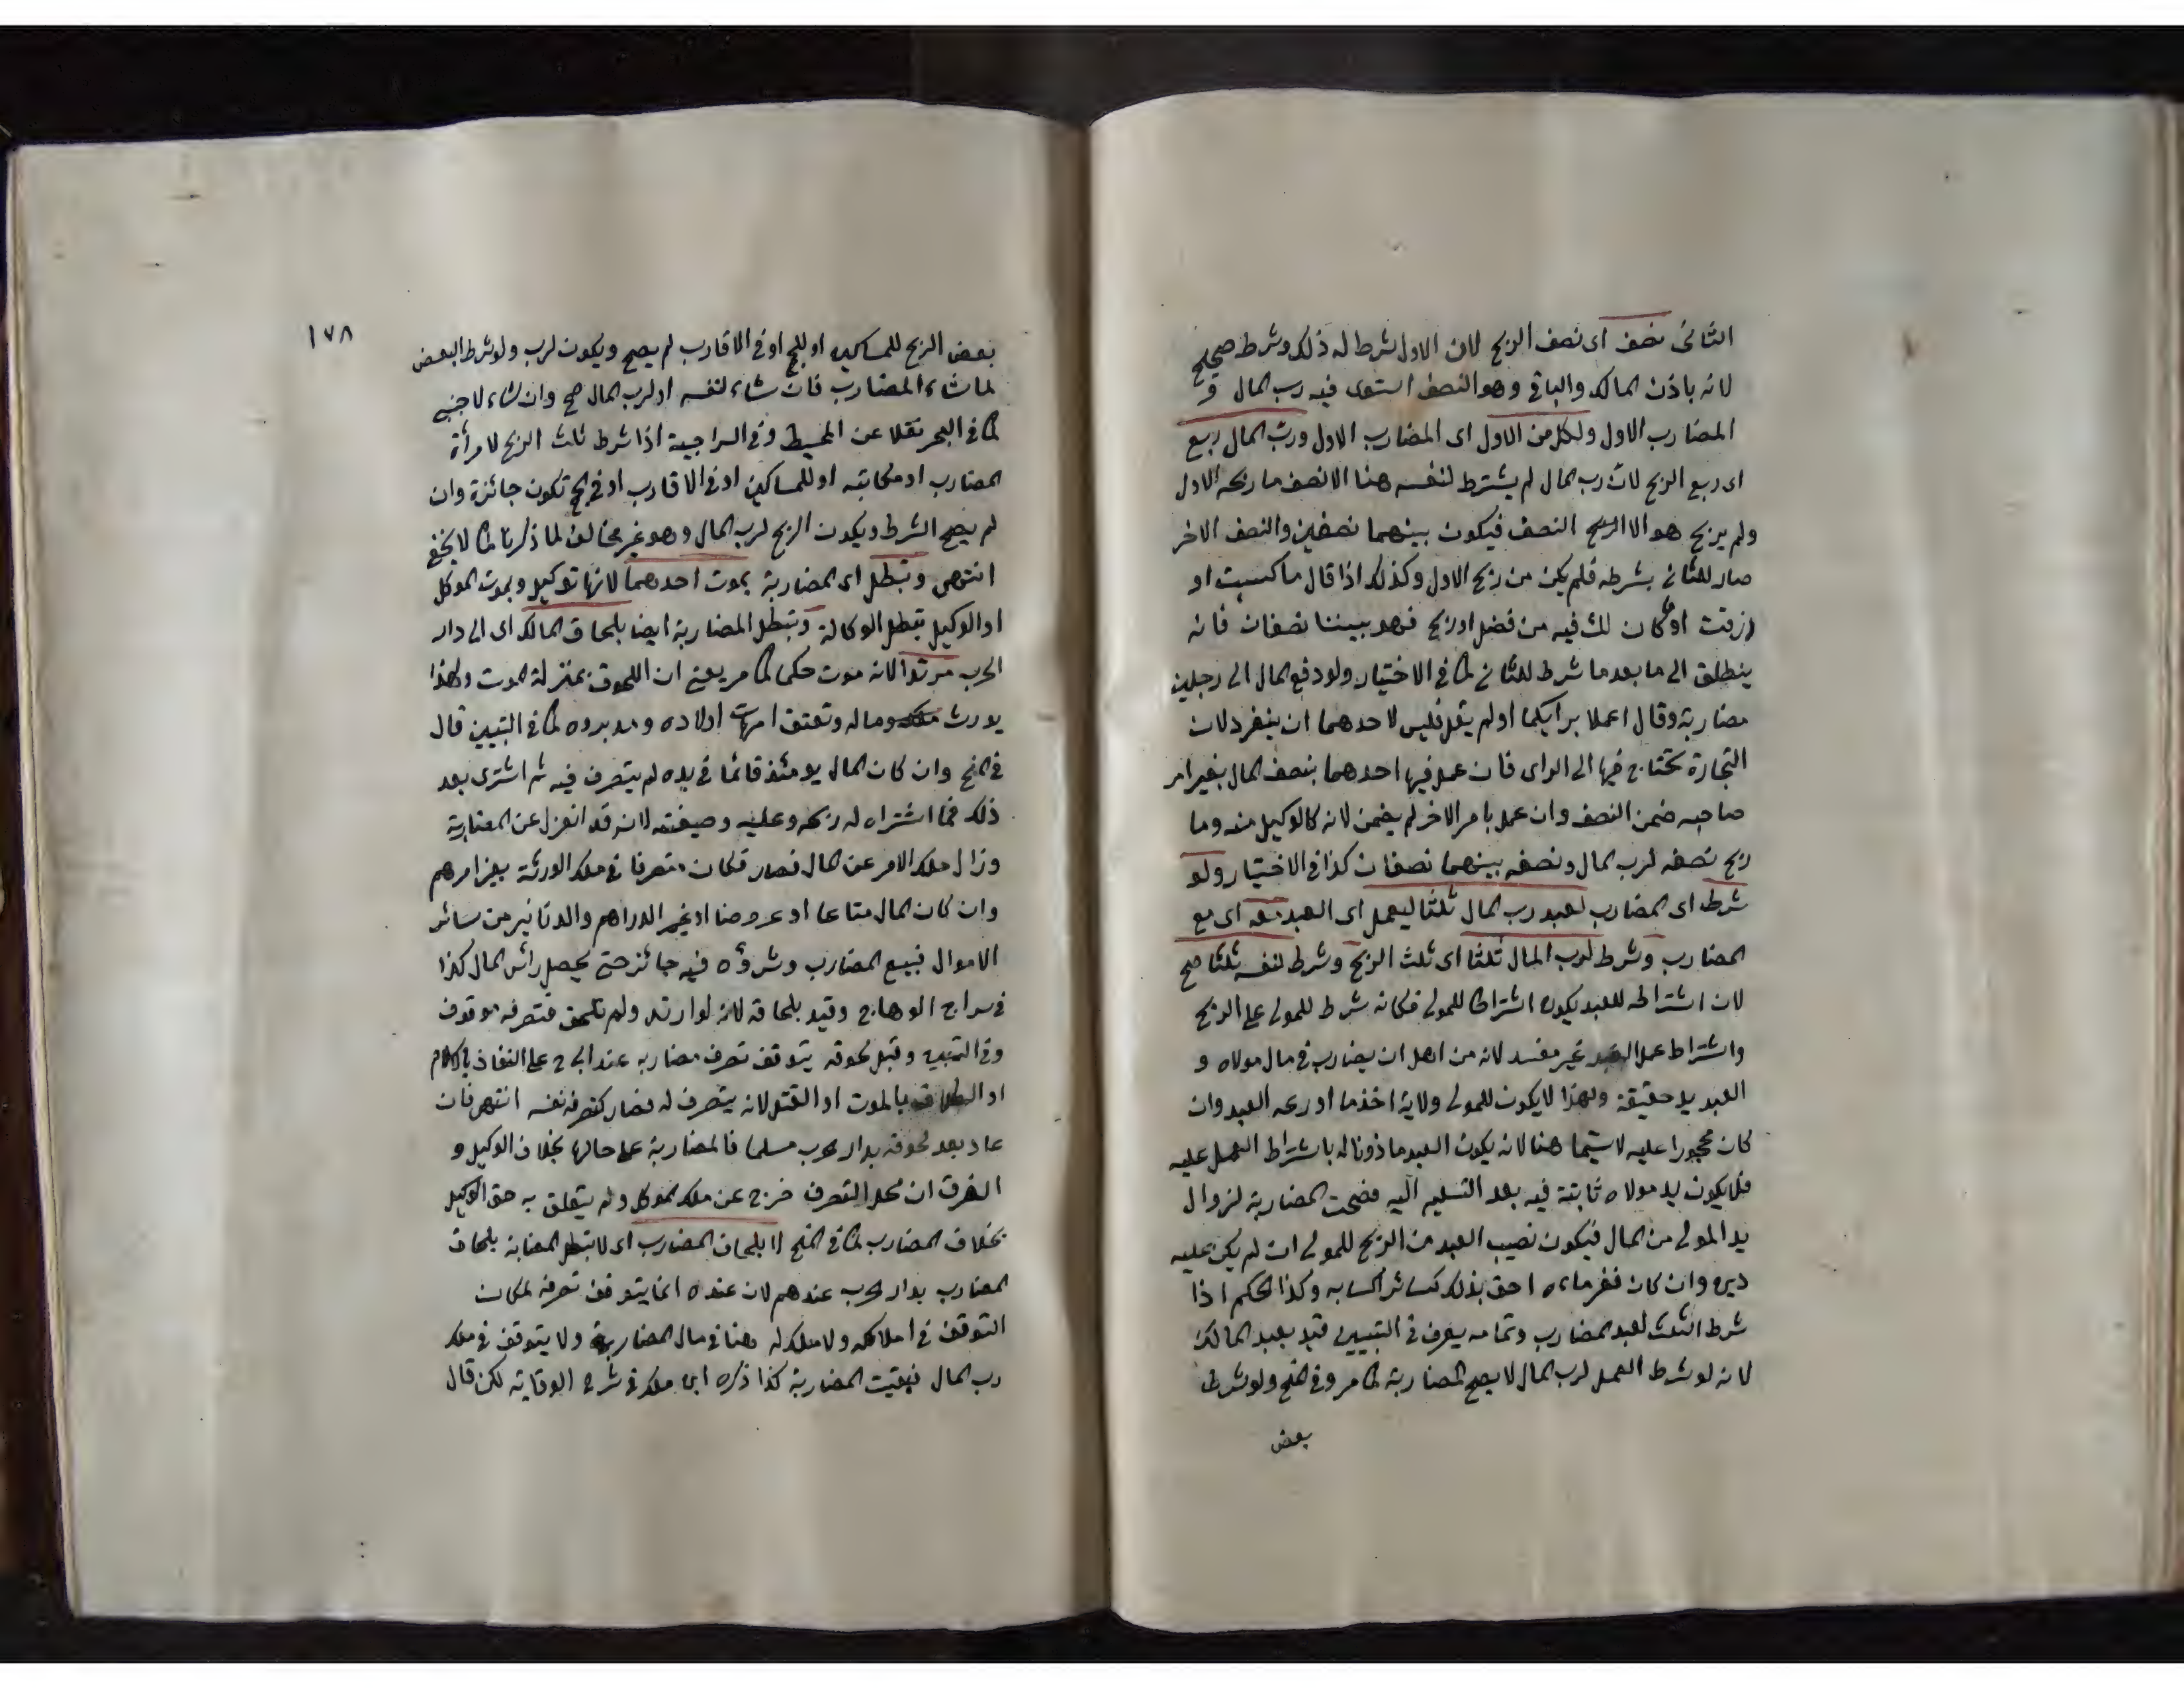 الثانى نصف اى نصف الربح لان الاول شرط له ذلك وشرط صحيح
لانه باذن المالك والباقى وهو النصف استوى فيه رب المال و
المضارب الاول ولكل من الاول اى المضارب الاول ورب المال ربع
اى ربع الربح لان رب المال لم يشترط لنفسه هنا الا نصف ما ربحه الاول
ولم يربح هو الا الربح النصف فيكون بينهما نصفين والنصف الاخر
صار للثانى بشرطه فلم يكن من ربح الاول وكذلك اذا قال ما كسبت او
رزقت او ما كان لك فيه من فضل او ربح فهو بيننا نصفان فانه
ينطلق الى ما بعد ما شرط للثانى كما فى الاختيار ولو دفع المال الى رجلين
مضاربة وقال اعملا برايكما او لم يقل فليس لاحدهما ان ينفرد لان
التجارة تحتاج فيها الى الراى فان عمل فيها احدهما بنصف المال بغير امر
صاحبه ضمن النصف وان عمل بامر الاخر لم يضمن لانه كالوكيل منه وما
ربح نصفه لرب المال ونصفه بينهما نصفان كذا فى الاختيار ولو
شرط اى المضارب لعبد رب المال ثلثا ليعمل اى العبد معه اى مع
المضارب وشرط لرب المال ثلثا اى ثلث الربح وشرط لنفسه ثلثا صح
لان اشتراطه للعبد يكون اشتراطا للمولى فكانه شرط للمولى على الربح
واشتراط عمل العبد غير مفسد لانه من اهل ان يضارب فى مال مولاه و
العبد يد حقيقة ولهذا لا يكون للمولى ولاية اخذ ما اودعه العبد وان
كان محجورا عليه لا سيما هنا لانه يكون العبد ماذونا له باشتراط العمل عليه
فلا يكون يد مولاه ثابتة فيه بعد التسليم اليه فصحت المضاربة لزوال
يد المولى من المال فيكون نصيب العبد من الربح للمولى ان لم يكن عليه
دين وان كان فغرماءه احق بذلك كسائر اكسابه وكذا الحكم اذا
شرط الثلث لعبد المضارب وتمامه يعرف فى التبيين قيد بعبد المالك
لانه لو شرط العمل لرب المال لا يصح المضاربة كما مر وفى المنح ولو شرط
بعض
١٧٨
بعض الربح للمساكين او للحج او فى الاقارب لم يصح ويكون لرب ولو شرط البعض
لما شاء المضارب فان شاء لنفسه او لرب المال صح وان شاء لاجنبى
كما فى البحر نقلا عن المحيط وفى السراجية اذا شرط ثلث الربح لامرأة
المضارب او مكاتبه او للمساكين او فى الاقارب او فى الحج تكون جائزة وان
لم يصح الشرط ويكون الربح لرب المال وهو غير مخالف لما ذكرنا كما لا يخفى
انتهى وتبطل اى المضاربة بموت احدهما لانها توكيل وبموت الموكل
او الوكيل تبطل الوكالة وتبطل المضاربة ايضا بلحاق المالك اى الى دار
الحرب مرتدا لانه موت حكمى كما مر يعنى ان اللحوق بمنزلة الموت ولهذا
يورث ماله وتعتق امهات اولاده ومدبروه كما فى التبيين قال
فى المنح وان كان المال يومئذ قائما فى يده لم يتصرف فيه ثم اشترى بعد
ذلك فما اشتراه له ربحه وعليه وضيعته لانه قد انعزل عن المضاربة
وزال ملك الامر عن المال فصار فكان متصرفا فى ملك الورثة بغير امرهم
وان كان المال متاعا او عروضا او غير الدراهم والدنانير من سائر
الاموال فبيع المضارب وشرؤه فيه جائز حتى يحصل رأس المال كذا
فى سراج الوهاج وقيد بلحاقه لانه لو ارتد ولم يلحق فتصرفه موقوف
وفى التبيين وقبل لحوقه يتوقف تصرف مضاربه عند ابى ح على النفاذ بالاسلام
او البطلان بالموت او القتل لانه يتصرف له فصار كتصرفه نفسه انتهى فان
عاد بعد لحوقه بدار الحرب مسلما فالمضاربة على حالها بخلاف الوكيل و
الفرق ان محل التصرف خرج عن ملك الموكل ولم يتعلق به حق الوكيل
بخلاف المضارب كما فى المنح لا بلحاق المضارب اى لا تبطل المضاربة بلحاق
المضارب بدار الحرب عندهم لان عنده انما يتوقف تصرفه لمكان
التوقف فى املاكه ولا ملك له هنا فى مال المضاربة ولا يتوقف فى ملك
رب المال فبقيت المضاربة كذا ذكره ابن ملك فى شرح الوقاية لكن قال